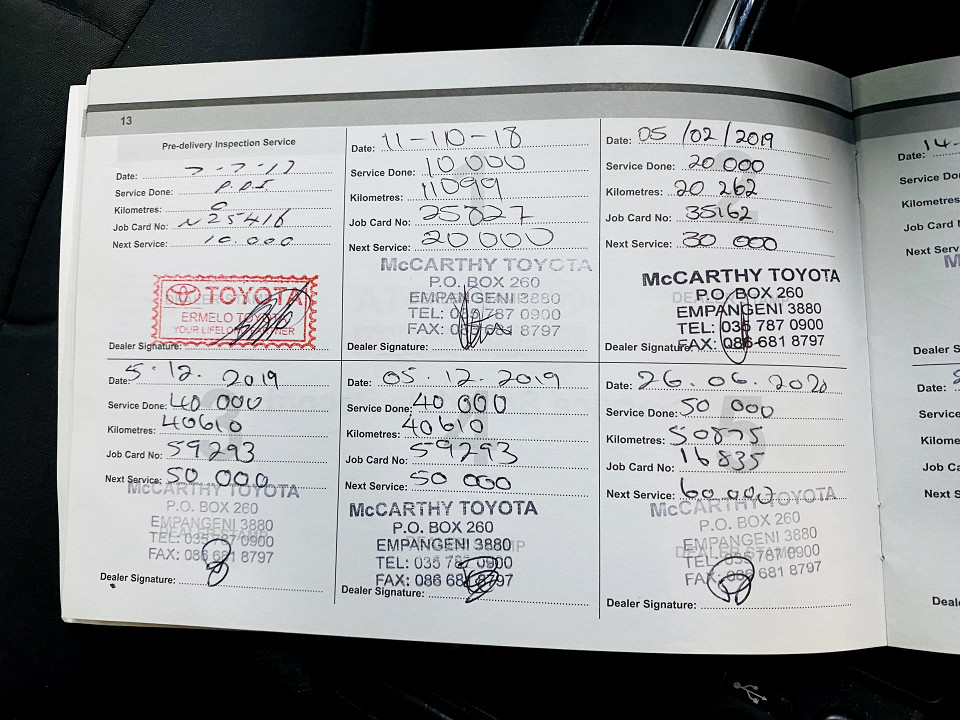 13
Pre-delivery Inspection Service
Date: 7-7-17
Service Done: P.D.I
Kilometres: 0
Job Card No: N25416
Next Service: 10.000
TOYOTA
ERMELO TOYOTA
YOUR LIFELONG PARTNER
Dealer Signature:
Date: 11-10-18
Service Done: 10 000
Kilometres: 11099
Job Card No: 25827
Next Service: 20 000
McCARTHY TOYOTA
P.O. BOX 260
EMPANGENI 3880
TEL: 035 787 0900
FAX: 086 681 8797
Dealer Signature:
Date: 05/02/2019
Service Done: 20 000
Kilometres: 20 262
Job Card No: 35162
Next Service: 30 000
McCARTHY TOYOTA
P.O. BOX 260
EMPANGENI 3880
TEL: 035 787 0900
FAX: 086 681 8797
Dealer Signature:
Date: 5.12.2019
Service Done: 40 000
Kilometres: 40610
Job Card No: 59293
Next Service: 50 000
McCARTHY TOYOTA
P.O. BOX 260
EMPANGENI 3880
TEL: 035 787 0900
FAX: 086 681 8797
Dealer Signature:
Date: 05.12.2019
Service Done: 40 000
Kilometres: 40610
Job Card No: 59293
Next Service: 50 000
McCARTHY TOYOTA
P.O. BOX 260
EMPANGENI 3880
TEL: 035 787 0900
FAX: 086 681 8797
Dealer Signature:
Date: 26.06.2020
Service Done: 50 000
Kilometres: 50875
Job Card No: 16835
Next Service: 60 000
McCARTHY TOYOTA
P.O. BOX 260
EMPANGENI 3880
TEL: 035 787 0900
FAX: 086 681 8797
Dealer Signature:
Date: 14-
Service Do
Kilometres
Job Card N
Next Serv
M
Dealer S
Date:
Service
Kilome
Job Ca
Next S
Deal